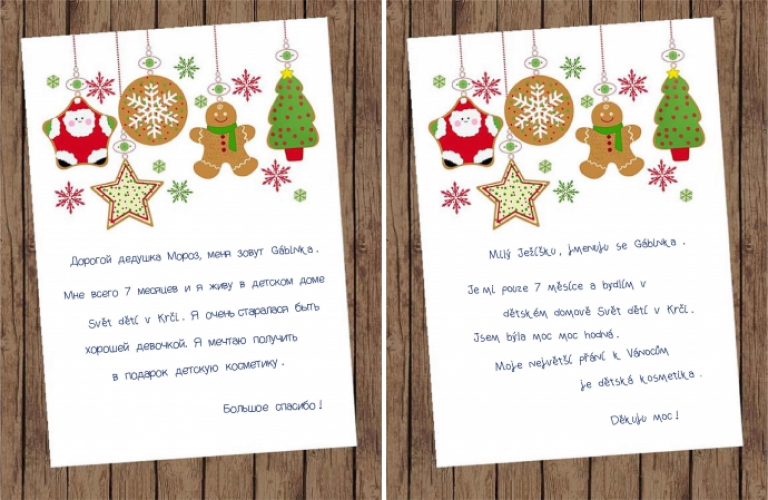 Дорогой дедушка Мороз, меня зовут Gábinka.
Мне всего 7 месяцев и я живу в детском доме
Svět dětí v Krči. Я очень старалася быть
хорошей девочкой. Я мечтаю получить
в подарок детскую косметику.
Большое спасибо!
Milý Ježíšku, jmenuju se Gábinka.
Je mi pouze 7 měsíce a bydlím v
dětském domově Svět dětí v Krči.
Jsem byla moc moc hodná.
Moje největší přání k Vánocům
je dětská kosmetika.
Děkuju moc!